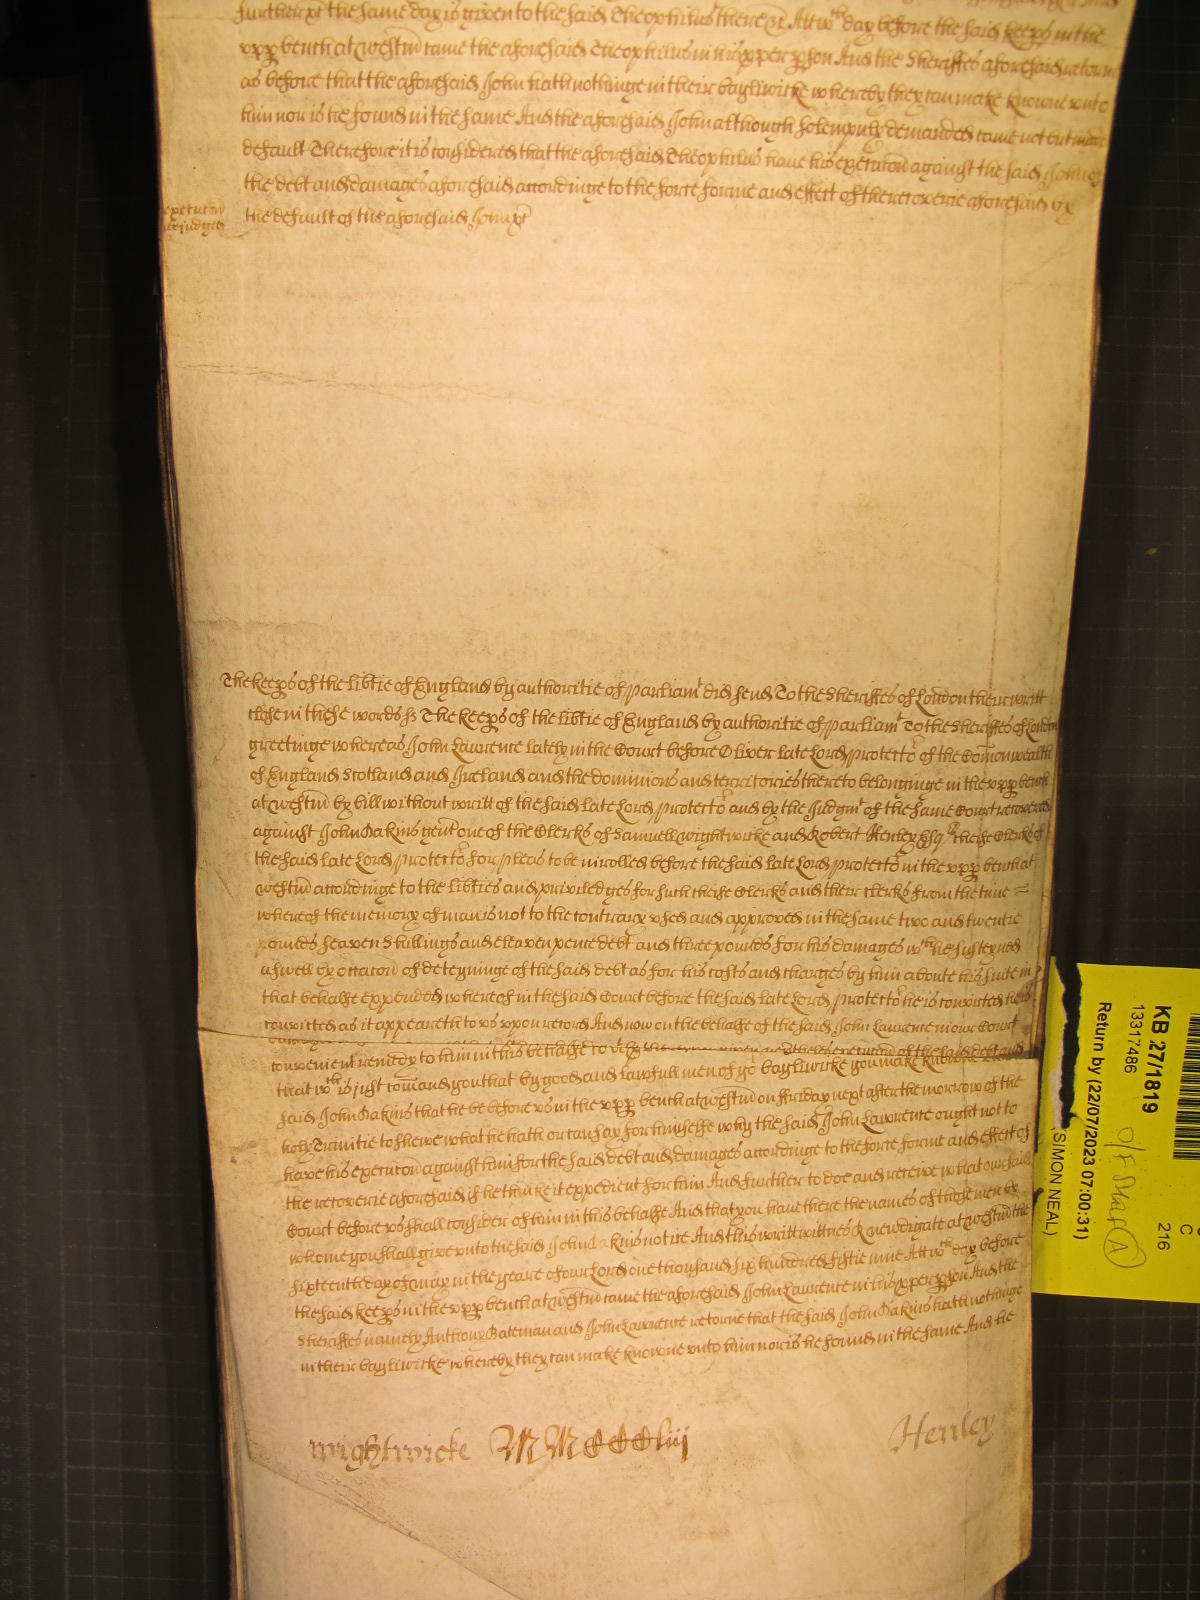 further &c the same day is given to the said Theophilus there &c Att wch day before the said keepers in the
upper bench at Westm came the aforesaid Theophilus in his pper pson And the Sheriffes aforesaid retorne
as before that the aforesaid John hath nothinge in their bayliwicke whereby they can make knowne unto
him nor is he found in the same And the aforesaid John although solempnly demanded came not but made
default Therefore it is considered that the aforesaid Theophilus have his execucon against the said John of
the debt and damages aforesaid accordinge to the force forme and effect of the recoverie aforesaid by
execucon
adjudged
the default of the aforesaid John &c
The keeps of the libtie of England by authoritie of Parliamt did send To the Sheriffes of London their writt
close in these words ss The keeps of the libtie of England by authoritie of Parliamt To the Sheriffes of London
greetinge whereas John Lawrence lately in the Court before Oliver late Lord Protector of the Comonwealth
of England Scotland and Ireland and the dominions and territories thereto belonginge in the upp bench
at Westm by bill without writt of the said late Lord Protector and by the Judgmt of the same Court recovered
against John Dakins gent one of the Clerks of Samuell Wightwicke and Robert Henley Esqrs cheife Clerks of
the said late Lord Protector for pleas to be inrolled before the said late Lord Protector in the upp bench at
Westm accordinge to the libties and priviledges for such cheife Clerks and their clerks from the time =
whereof the memory of man is not to the contrary used and approved in the same two and twentie
pounds seaven shillings and eleaven pence debt and three pounds for his damages wch he susteyned
aswell by occacon of deteyninge of the said debt as for his costs and charges by him aboute his suite in
that behalfe expended whereof in the said Court before the said late Lord Protector he is convicted
convicted as it appeareth to us uppon record And now on the behalfe of the said John Lawrence in our Court
convenient remedy to him in this behalfe to
that wch is just comand you that by good and lawfull men of yor bayliwicke you make knowne
said John Dakins that he be before us in the upp bench at Westm on ffriday next after the morrow of the
holy Trinitie to shewe what he hath or can say for himselfe why the said John Lawrence ought not to
have his execucon against him for the said debt and damages accordinge to the force forme and effect of
the recoverie aforesaid if he thinke it expedient for him And further to doe and receive what our said
Court before us shall consider of him in this behalfe And that you have there the names of those men by
whome you shall give unto the said John Dakins notice And this writt wittnes R Newdigate at Westm the
sixteenth day of May in the yeare of our Lord one thousand six hundred fiftie nine Att wch day before
the said keeps in the upp bench at Westm came the aforesaid John Lawrence in his pper pson And the
Sheriffes namely Anthony Bateman and John Lawrence retorne that the said John Dakins hath nothinge
in their bayliwicke whereby they can make knowne unto him nor is he found in the same And he
Wightwicke MMCCCCliij Henley
KB 27/1819
13317486
O/F Shelf A
Return by (22/07/2023 07:00:31)
(SIMON NEAL)
C
216